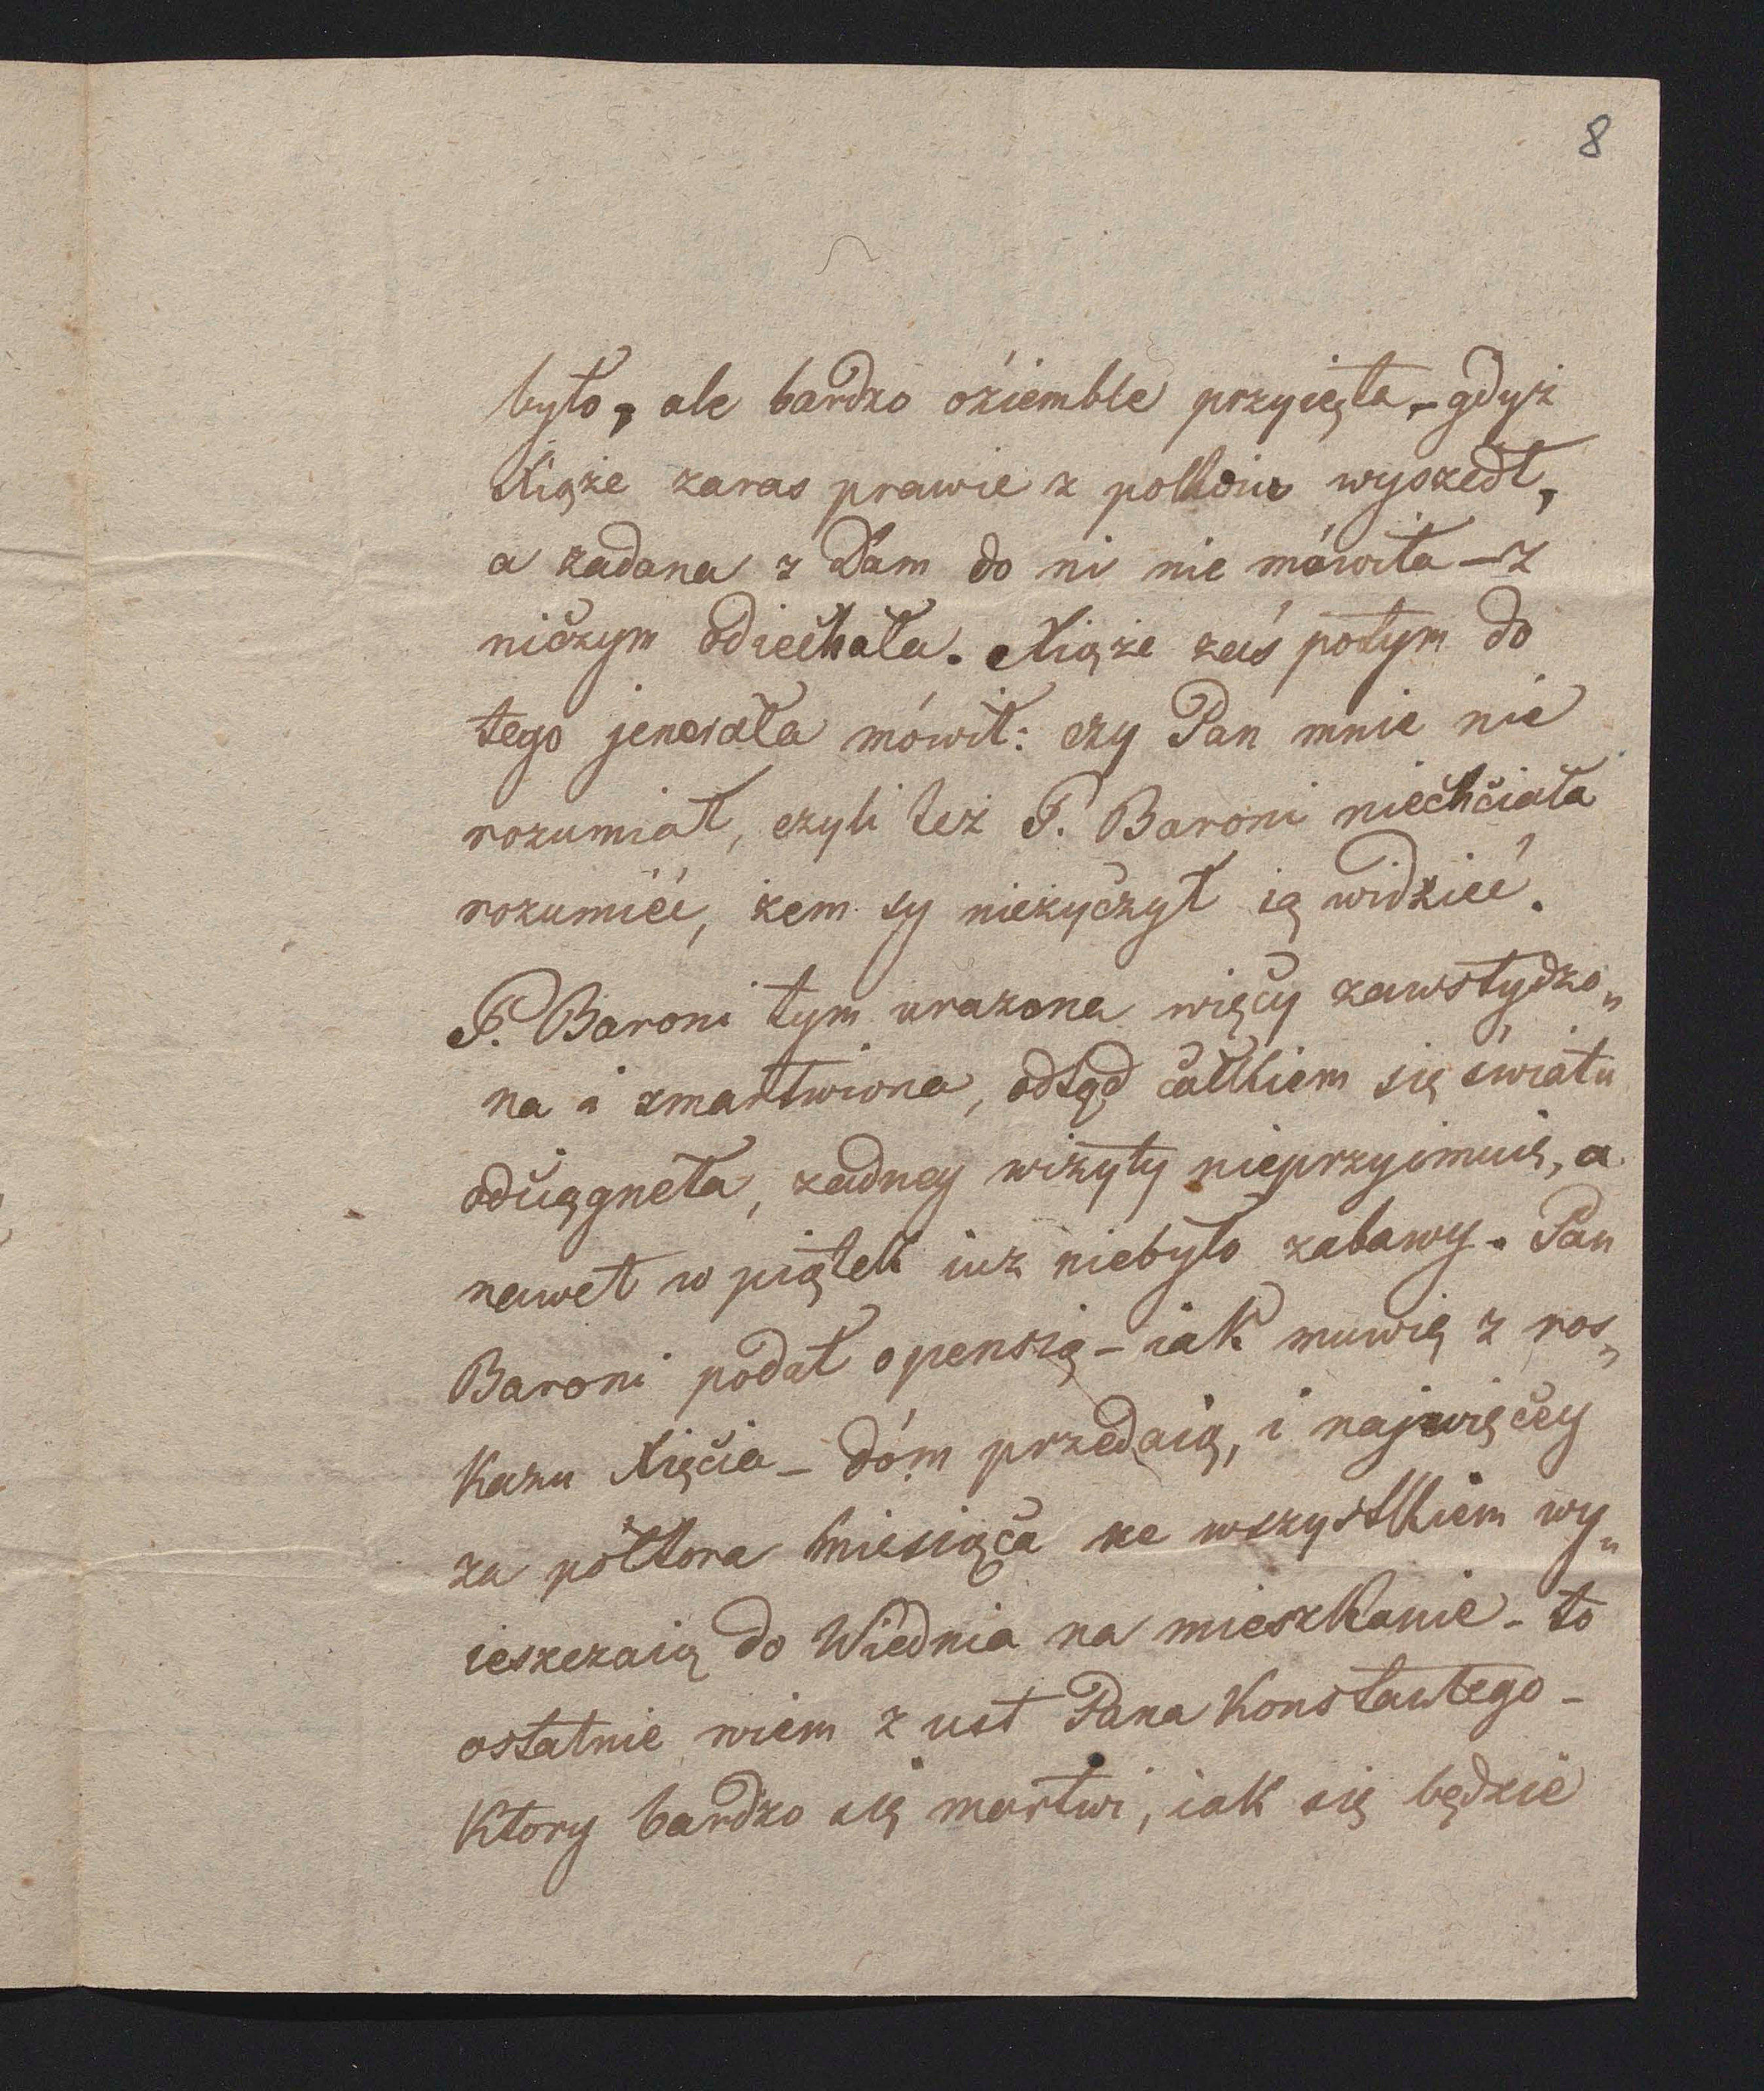 8
było, ale bardzo oziemble przyięta, – gdyż
Xiąże zaras prawie z pokoiu wyszedł,
a żadana z Dam do ni nie mówiła – z
niczym odiechała. Xiąże zaś potym do
tego jenerała mówił: czy Pan mnie nie
rozumiał, czyli też P. Baroni niechciała
rozumieć, żem sy nieżyczył ią widzieć.
P. Baroni tym urażona więcy zawstydzo„
na i zmartwiona, odtąd całkiem się światu
odciągneła, żadney wizyty nieprzyimuie, a
nawet w piątek iuż niebyło zabawy. Pan
Baroni podał o pensią – iak muwią z ros„
kazu Xięcia – dóm przedaią, i najwięcey
za półtora miesiąca ze wszystkiem wy„
ieszczaią do Wiednia na mieszkanie – to
ostatnie wiem z ust Pana Konstantego –
Ktory bardzo się martwi, iak się będzie